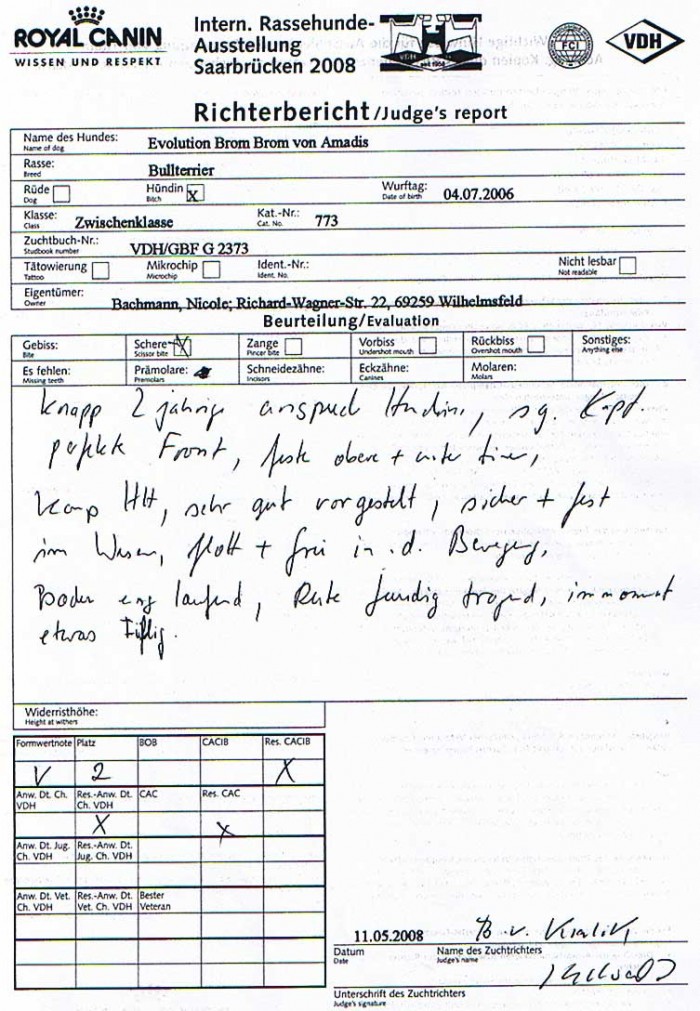 ROYAL CANIN
WISSEN UND RESPEKT
Intern. Rassehunde-
Ausstellung
Saarbrücken 2008
VDH
FCI
VDH
Richterbericht/Judge's report
Name des Hundes: Evolution Brom Brom von Amadis
Name of dog
Rasse: Bullterrier
Breed
Rüde Hündin X Wurftag: 04.07.2006
Dog Bitch Date of birth
Klasse: Zwischenklasse Kat.-Nr.: 773
Class Cat. No.
Zuchtbuch-Nr.: VDH/GBF G 2373
Studbook number
Tätowierung Mikrochip Ident.-Nr.: Nicht lesbar
Tattoo Microchip Ident. No. Not readable
Eigentümer: Bachmann, Nicole; Richard-Wagner-Str. 22, 69259 Wilhelmsfeld
Owner
Beurteilung/Evaluation
Gebiss: Schere X Zange Vorbiss Rückbiss Sonstiges:
Bite Scissor bite Pincer bite Undershot mouth Overshot mouth Anything else
Es fehlen: Prämolare: Schneidezähne: Eckzähne: Molaren:
Missing teeth Premolars Incisors Canines Molars
Knapp 2 jährige Hündin, sg. Kopf.
Front, feste obere + untere
sehr gut vorgestellt, sicher + fest
im Wesen, flott + frei in d. Bewegung,
eng laufend, Rute tragend, im moment
etwas
Widerristhöhe:
Height at withers
Formwertnote Platz BOB CACIB Res. CACIB
V 2 X
Anw. Dt. Ch. VDH Res.-Anw. Dt. Ch. VDH CAC Res. CAC
X X
Anw. Dt. Jug. Ch. VDH Res.-Anw. Dt. Jug. Ch. VDH
Anw. Dt. Vet. Ch. VDH Res.-Anw. Dt. Vet. Ch. VDH Bester Veteran
11.05.2008
Datum Name des Zuchtrichters
Date Judge's name
Unterschrift des Zuchtrichters
Judge's signature